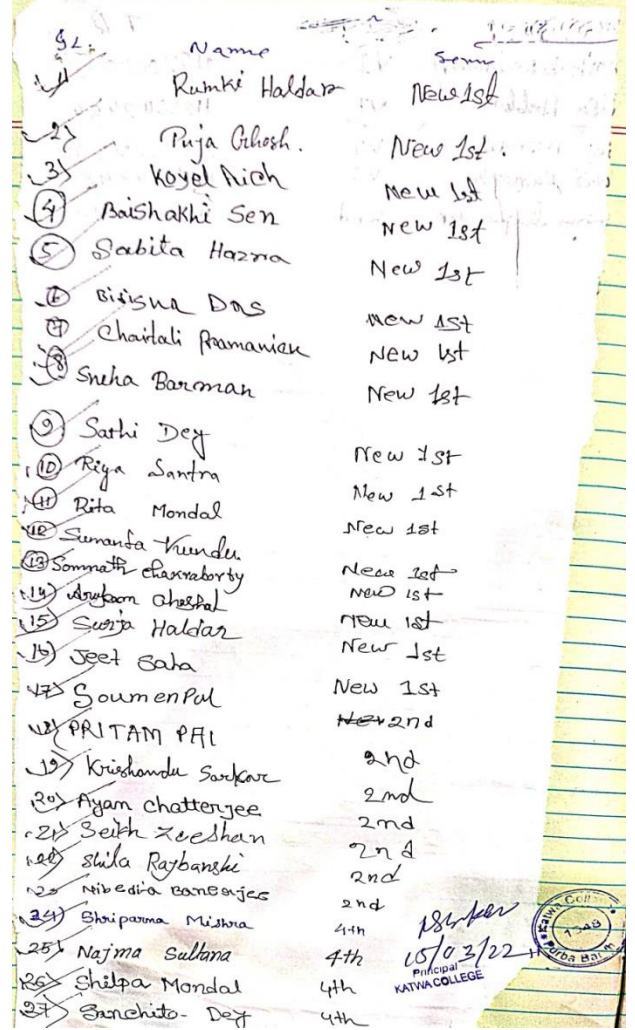 SL. Name Sem
1) Rumki Haldar New 1st
2) Puja Ghosh. New 1st.
3) Koyel Rich New 1st
4 Baishakhi Sen New 1st
5 Sabita Hazra New 1st
6 Das New 1st
7 Chaitali Pramanick New 1st
8 Sneha Barman New 1st
9 Sathi Dey New 1st
10 Riya Santra New 1st
11 Rita Mondal New 1st
12 Sumanta Kundu New 1st
13 Somnath Chakraborty New 1st
14) Ghoshal New 1st
15) Surja Haldar New 1st
16) Jeet Saha New 1st
17) Soumen Pal 2nd
18) PRITAM PAL 2nd
19) Krishandu Sarkar 2nd
20) Ayam Chatterjee 2nd
21) Seikh Zeeshan 2nd
22) Shila Rajbanshi 2nd
23 Nibedita Banerjee 2nd
24) Shriparna Mishra 4th
25) Najma Sultana 4th
26) Shilpa Mondal 4th
27) Sanchita Dey 4th
15/03/22
Principal
KATWA COLLEGE
Katwa Coll
1948
Purba Bar